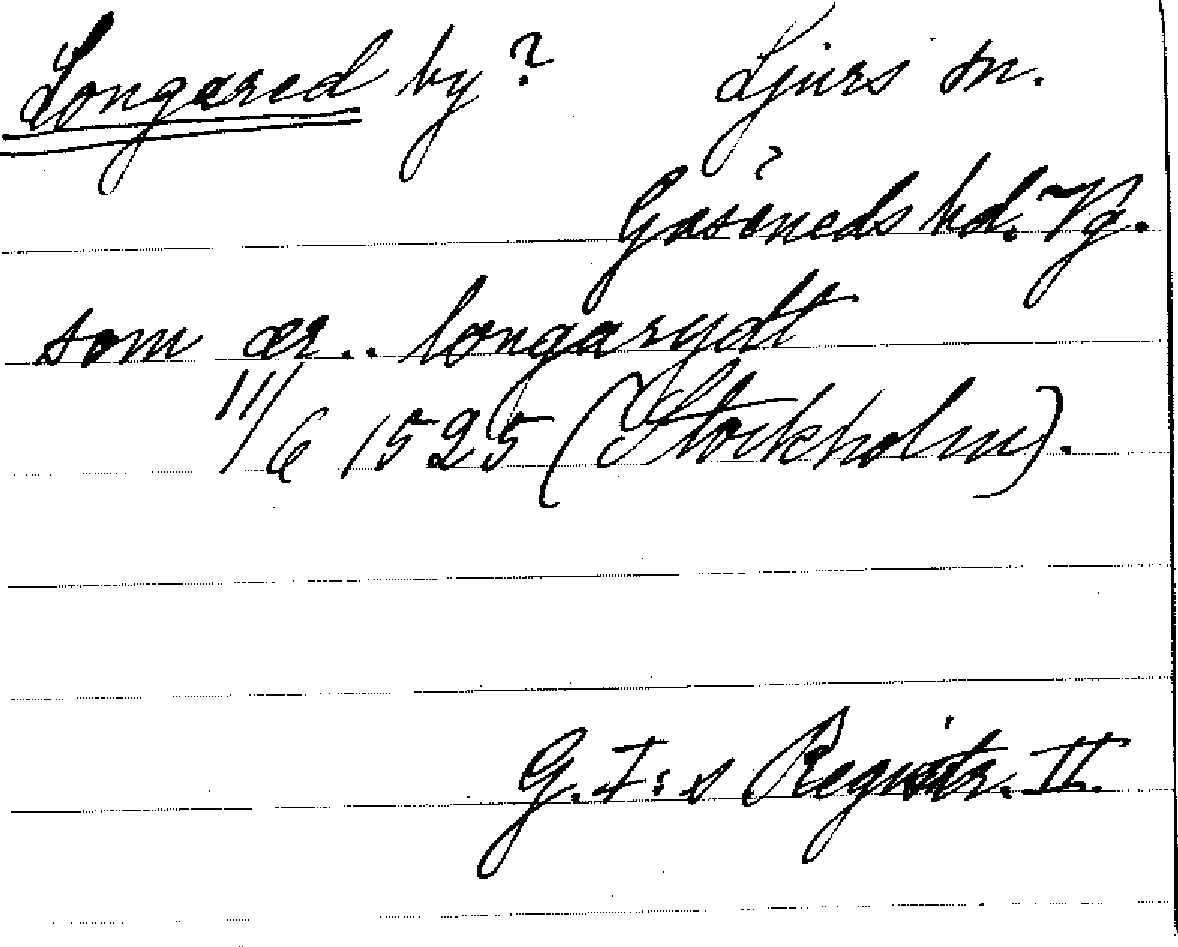 Longared by? Ljurs sn.
Gäseneds hd. Vg.
som ær.. longarydt
11/6 1525 (Stockholm).
G. I:s Registr. II.